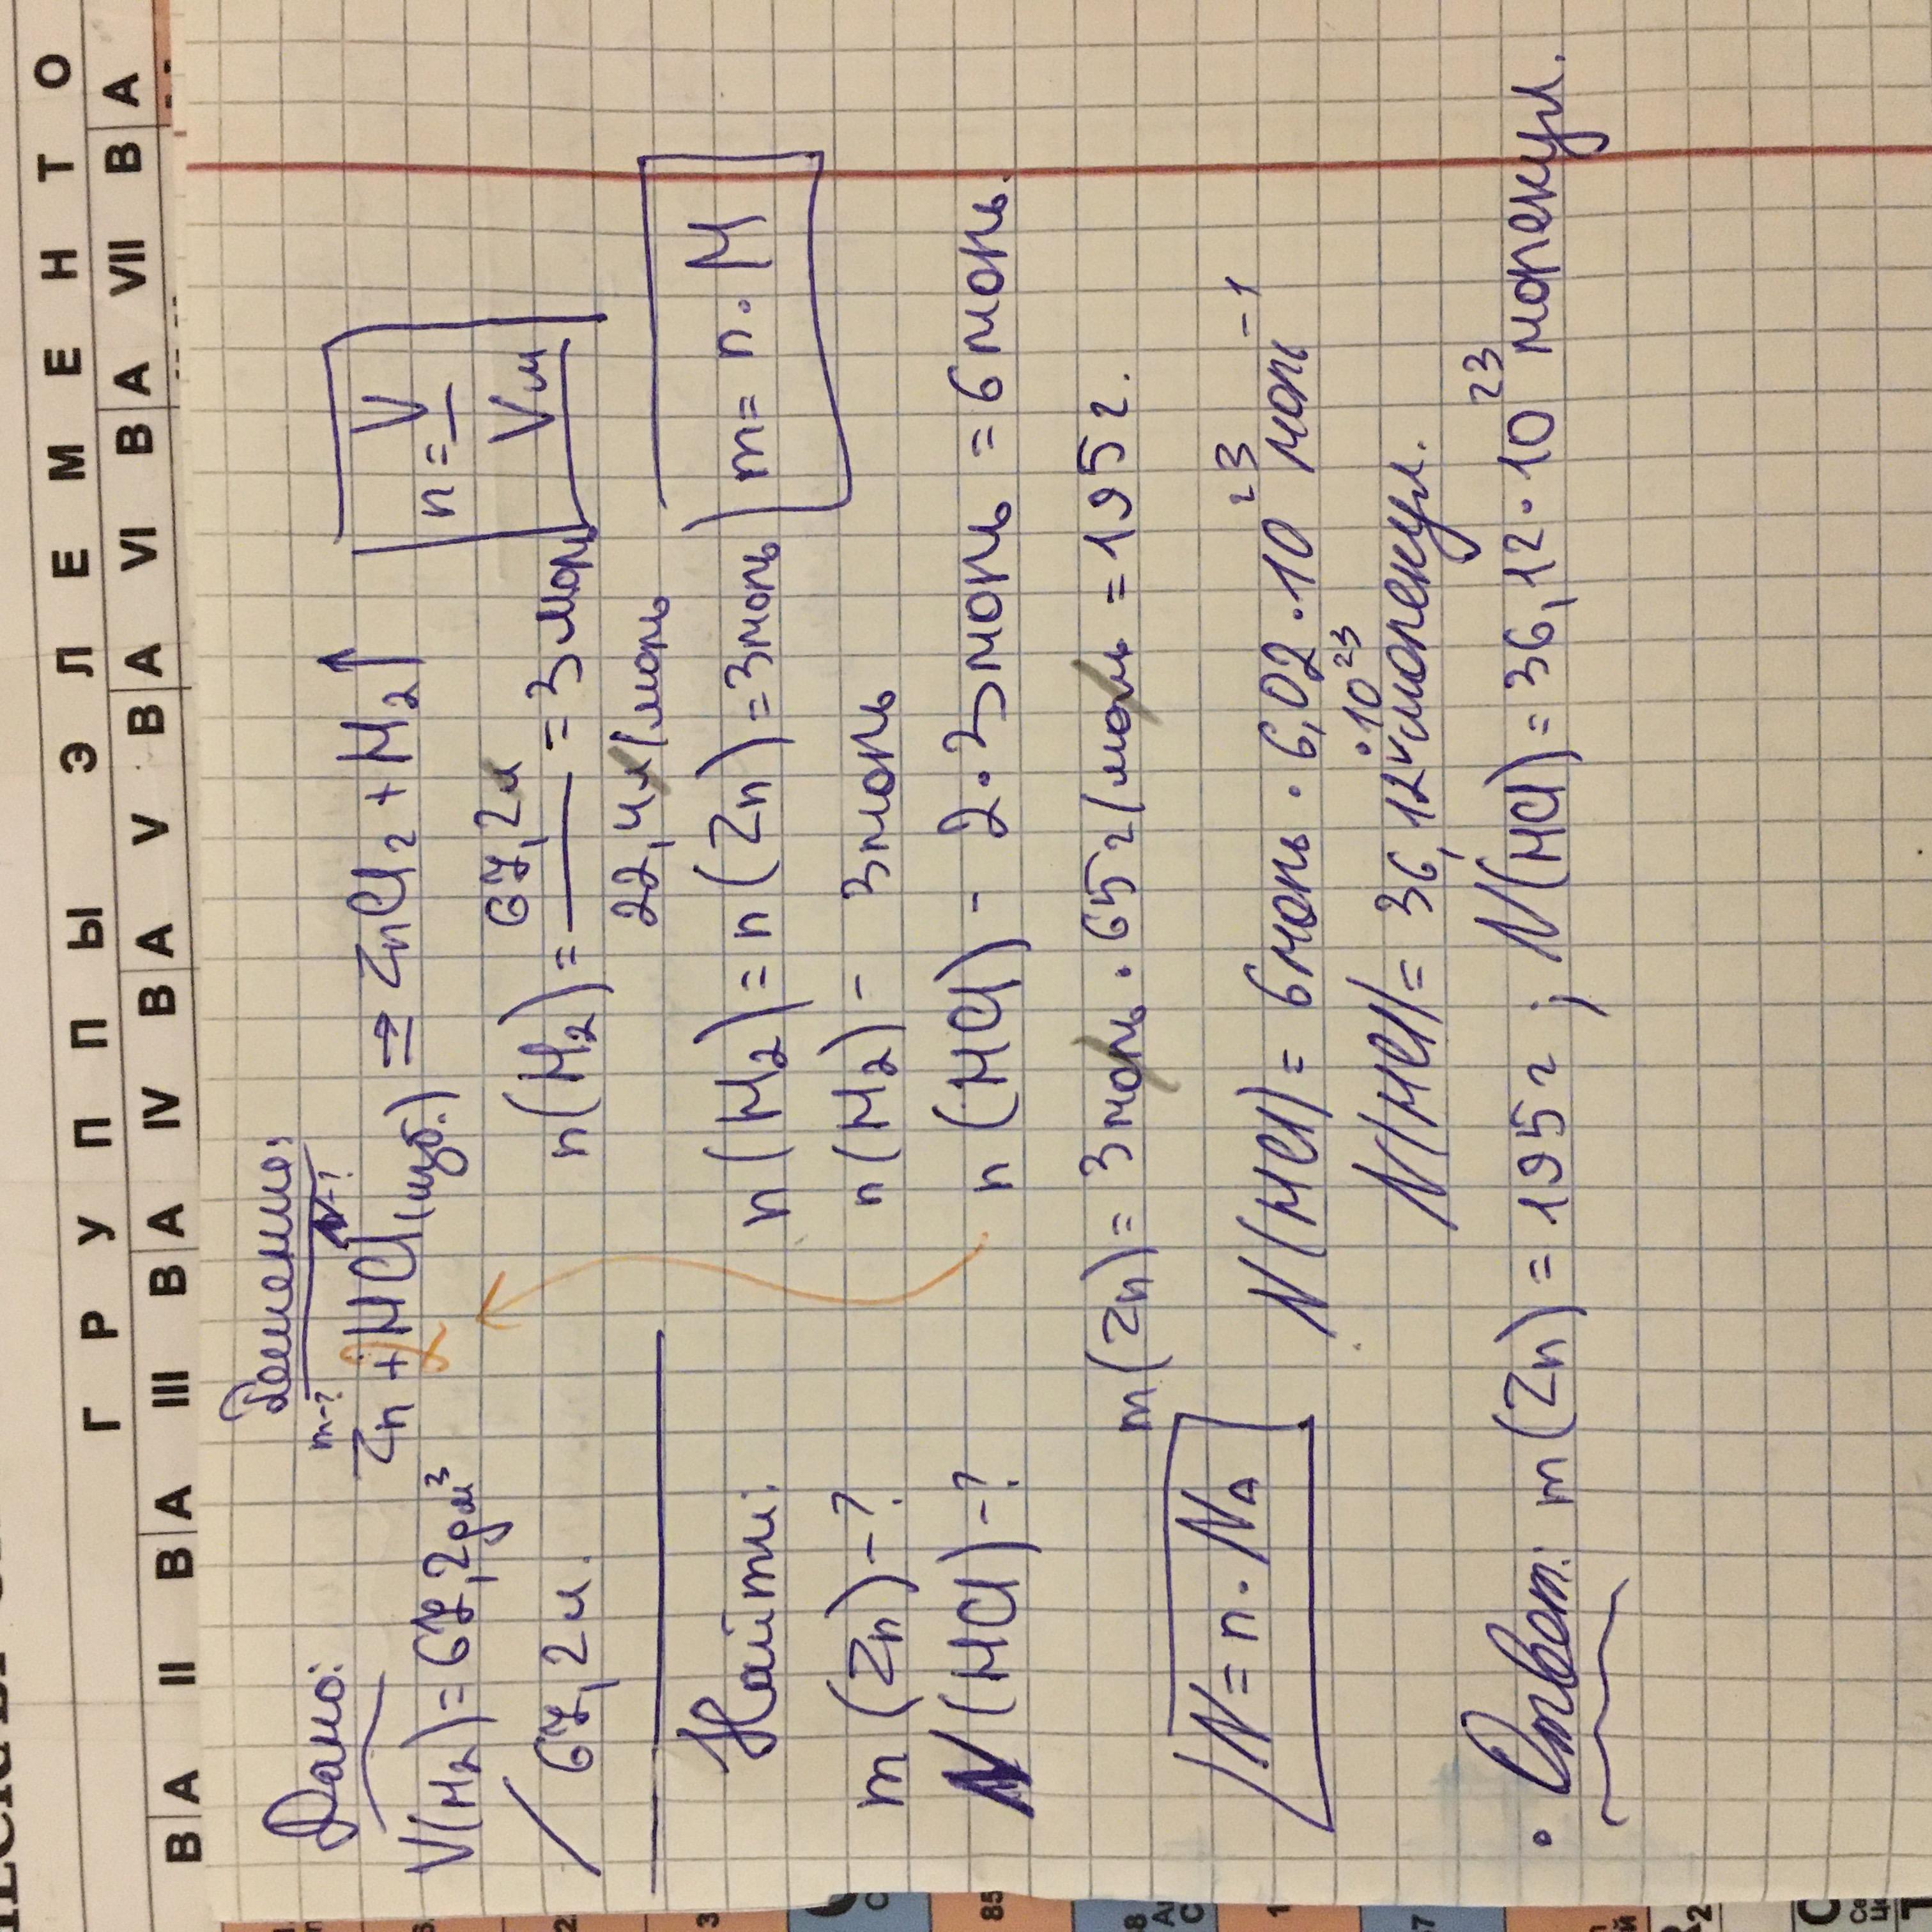 Г Р У П П Ы Э Л Е М Е Н Т О
В А II В А III В А IV В А V В А VI В А VII В А
Дано:
V(H₂) = 67,2 дм³
/ 67,2 л.
Найти:
m (Zn) - ?
N (HCl) - ?
N = n · Nₐ
Решение:
m-? N-?
Zn + HCl(изб.) ⇒ ZnCl₂ + H₂↑
2
n = V / Vм
n(H₂) = 67,2л / 22,4л/моль = 3 моль
n(H₂) = n(Zn) = 3моль
m = n · M
n(H₂) - 3моль
n (HCl) - 2 · 3моль = 6 моль.
m(Zn) = 3моль · 65г/моль = 195г.
N(HCl) = 6моль · 6,02 · 10²³ моль⁻¹
N(HCl) = 36,12 · 10²³ молекул.
Ответ: m(Zn) = 195г ; N(HCl) = 36,12 · 10²³ молекул.
85